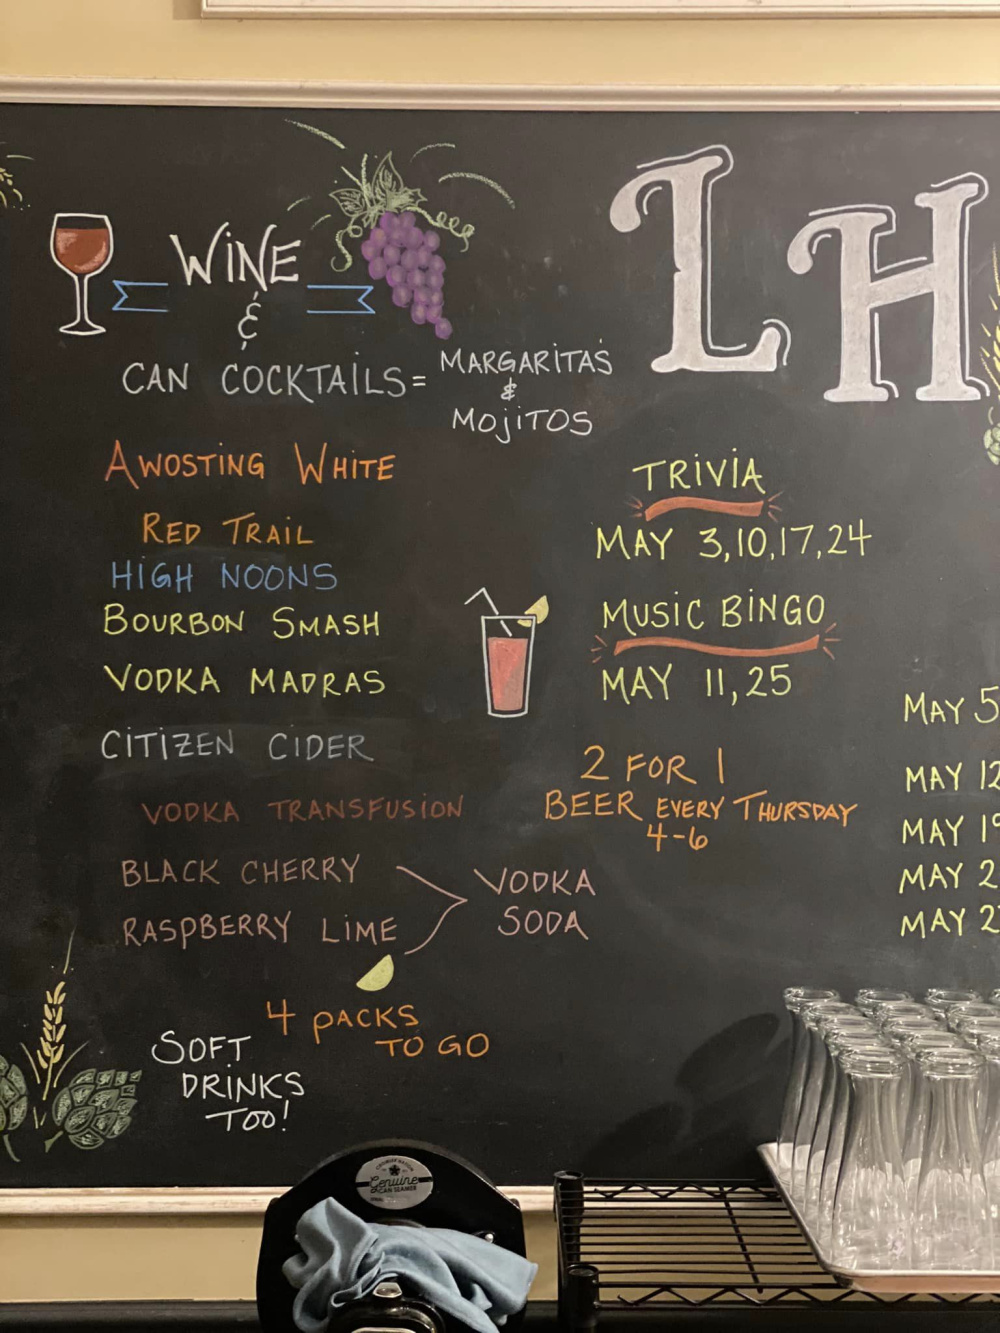 WINE
&
CAN COCKTAILS = MARGARITAS
&
MOJITOS
AWOSTING WHITE
RED TRAIL
HIGH NOONS
BOURBON SMASH
VODKA MADRAS
CITIZEN CIDER
VODKA TRANSFUSION
BLACK CHERRY
RASPBERRY LIME
VODKA
SODA
4 PACKS
TO GO
SOFT
DRINKS
TOO!
LH
TRIVIA
MAY 3,10,17,24
MUSIC BINGO
MAY 11,25
2 FOR 1
BEER EVERY THURSDAY
4-6
MAY 5
MAY 12
MAY 19
MAY 2
MAY 2
Genuine
CAN SEAMER